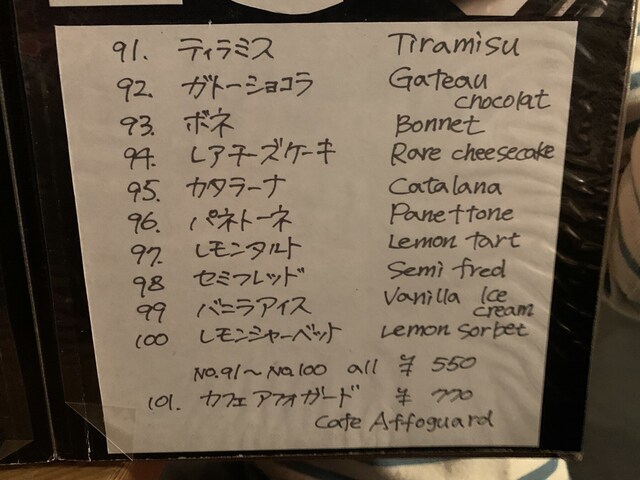 91. ティラミス Tiramisu
92. ガトーショコラ Gateau
chocolat
93. ボネ Bonnet
94. レアチーズケーキ Rare cheesecake
95. カタラーナ Catalana
96. パネトーネ Panettone
97. レモンタルト Lemon tart
98 セミフレッド Semi fred
99 バニラアイス Vanilla Ice
cream
100 レモンシャーベット Lemon Sorbet
No.91~No.100 all ¥ 550
101. カフェアフォガード ¥ 770
Cafe Affoguard